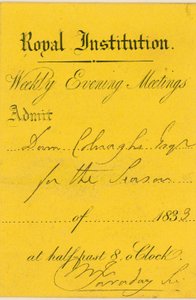 Royal Institution.
Weekly Evening Meetings
Admit
Dom Colnaghi Esqr
for the Season
of 1833
at half past 8 o'Clock.
M Faraday